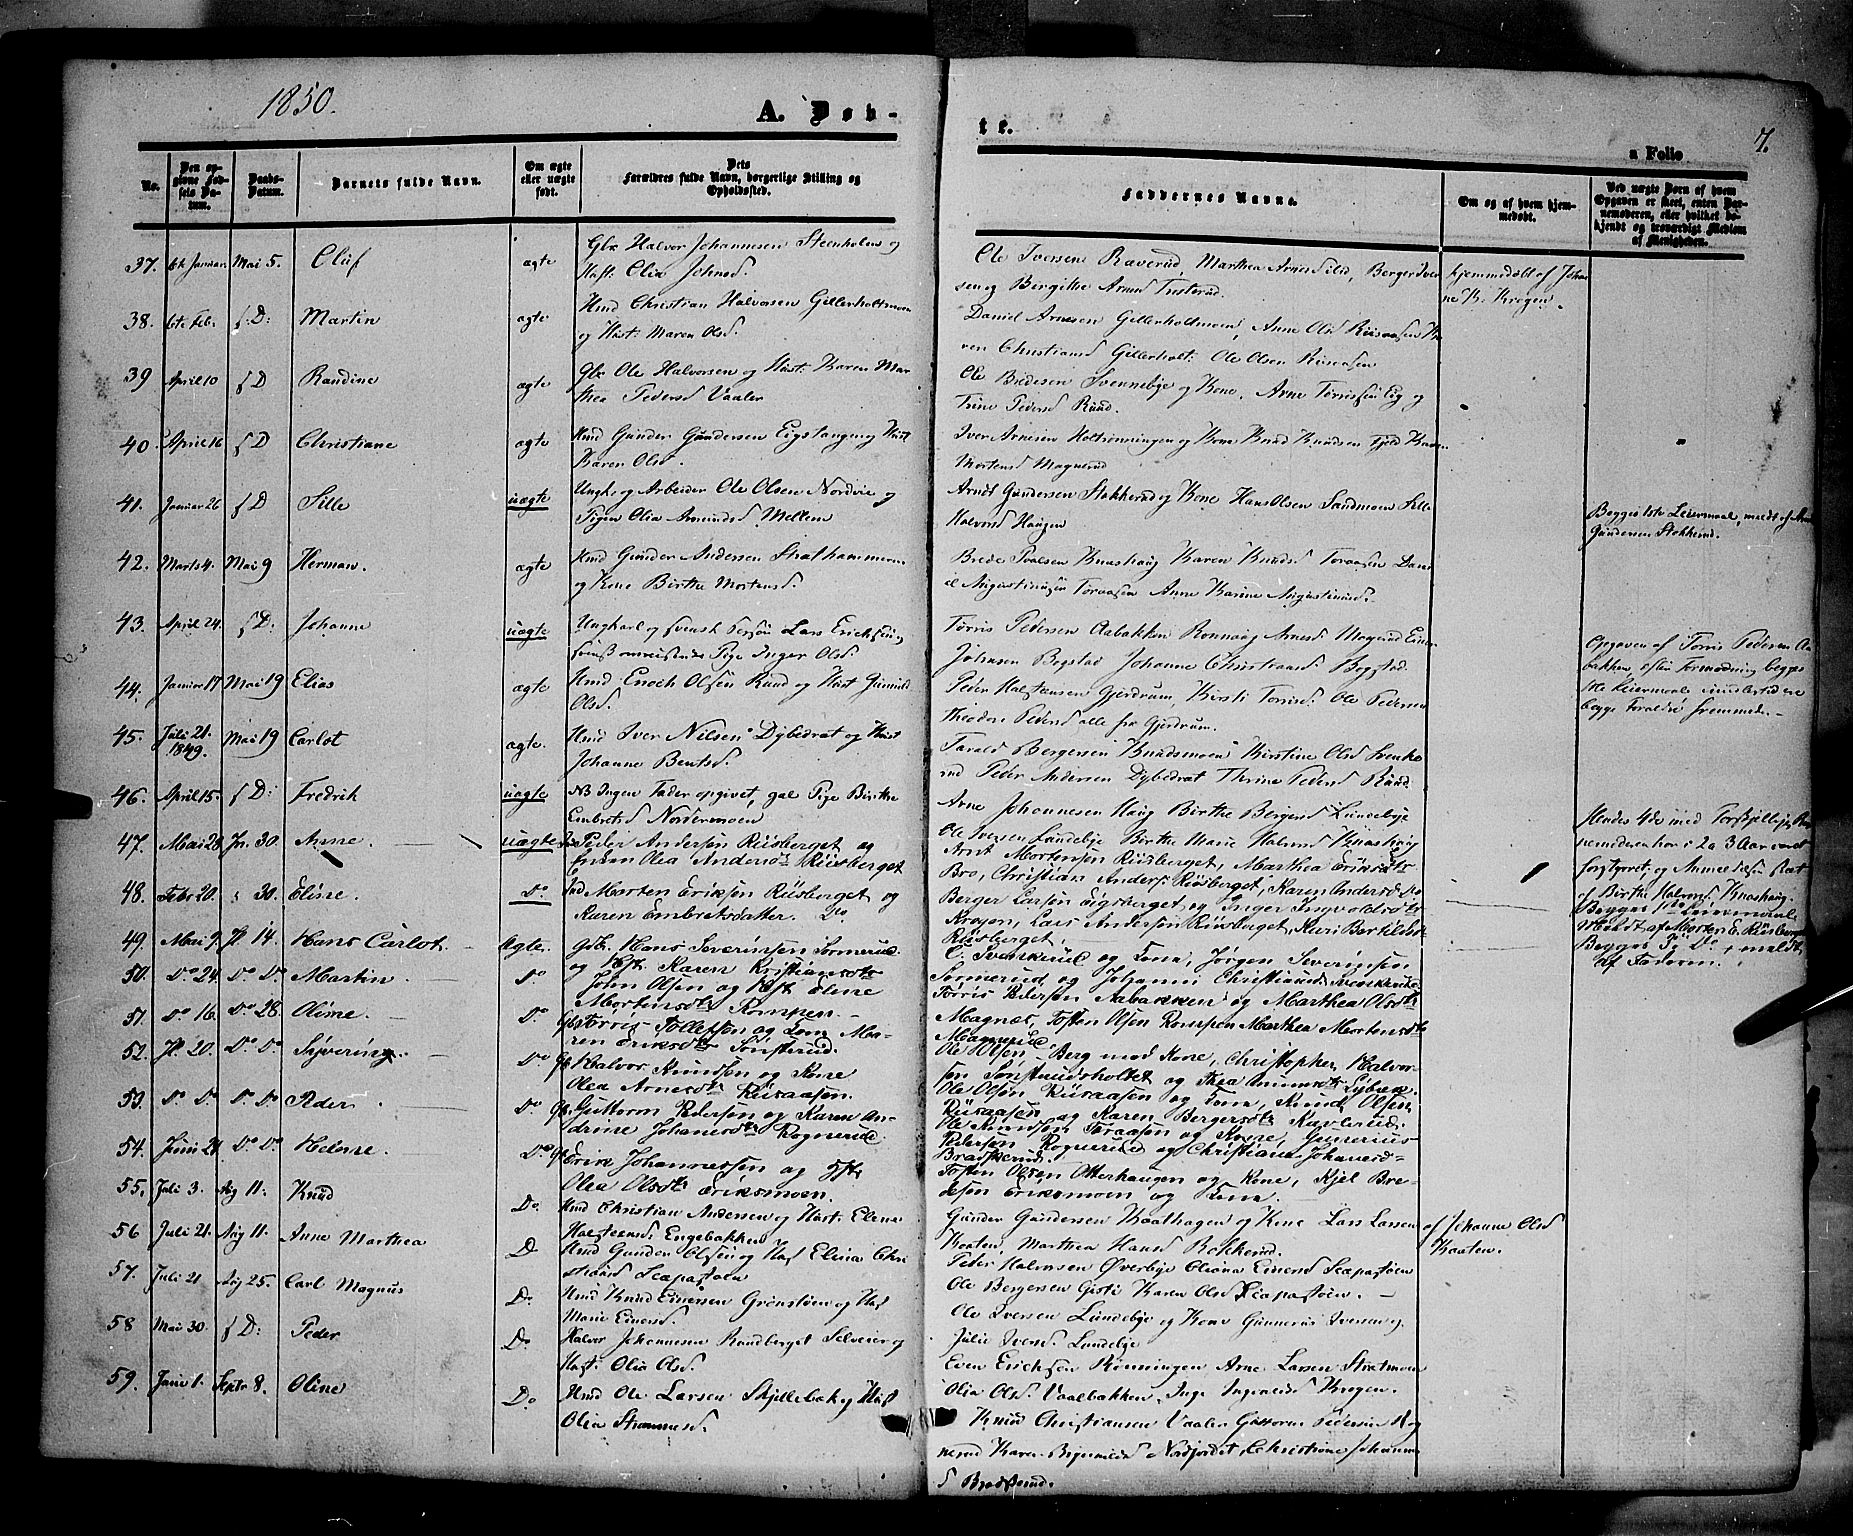 1850.
A. Døb-
te.
7.
a Folio
No.
Den op-
givne Fød-
sels Da-
tum.
Daabs-
Datum.
Barnets fulde Navn.
Om ægte
eller uægte
født.
Dets
Forældres fulde Navn, borgerlige Stilling og
Opholdssted.
Faddernes Navne.
Om og af hvem hjem-
medøbt.
Ved uægte Born af hvem
Opgaven er skeet, enten Bar-
nemoderen, eller hvilket be-
kjendt og troværdigt Medlem
af Menigheden.
37. 6te Januar. Mai 5. Oluf ægte
Gbr Halvor Johannesen Steenholm og
Hust. Olia Johnsd.
Ole Iversen Raverud, Marthea Arnesd ibd, Berger Iver
sen og Birgithe Arnesd Tristerud.
hjemmedøbt af Johan
ne K. Krogen.
38. 6te Feb. s: D: Martin ægte
Hmd Christian Halvorsen Gillerholtmoen
og Hust. Maren Olsd.
Daniel Arnesen Gillerholtmoen, Anne Olsd Riisaasen Ka
ren Christiansd Gillerholt: Ole Olsen Riisaasen
39 April 10 s D Randine ægte
Gbr Ole Halvorsen og Hust. Karen Mar
thea Pedersd Vaaler
Ole Bredesen Svennebye og Kone, Arne Torrissen Eig og
Trine Pedersd Ruud.
40. April 16 s D Christiane ægte
Hmd Gunder Gundersen Eigstangen og Hust
Karen Olsd.
Iver Arnesen Holtrønningen og Kone Knud Knudsen Fjeld Karen
Mortensd Magnerud
41. Januar 26 s D Sille uægte
Ungk. og Arbeider Ole Olsen Nordvie og
Pigen Olia Amundsd Mellem
Arnt Gundersen Stokkerud og Kone Hans Olsen Sandmoen Sille
Halvorsd Haugen
Begges 1ste Leiermaal, meldt af Arnt
Gundersen Stokkerud.
42. Marts 4. Mai 9 Herman. ægte
Hmd Gunder Andersen Strathammeren
og Kone Birthe Mortensd.
Brede Paalsen Knashaug Karen Knudsd Toraasen Dani
el Augustinusen Toraasen Anne Karine Augustinusd.
43. April 24. s D: Johanne uægte
Ungkarl og svensk Person Lars Erichsen og
omreisende Pige Inger Olsd.
Torris Pedersen Aabakken Ronnaug Arnesd Magerud Einer
Johnsen Bogstad Johanne Christiansd Bogstad
Opgaven af Torris Pedersen Aa
bakken, efter Formodning begges
1ste Leiermaal imidlertid ere
begge Forældre fremmede.
44. Januar 17 Mai 19 Elias ægte
Hmd Enoch Olsen Ruud og Hust Gunild
Olsd.
Peder Halstensen Gjerdrum, Kirsti Torrisd. Ole Pedersen
Theodor Pedersd alle fra Gjerdrum.
45. Juli 21.
1849. Mai 19 Carlot ægte.
Hmd Iver Nilsen Dybedrat og Hust
Johanne Bentsd.
Tarald Bergersen Knudsmoen Kirstine Olsd Svenke
rud Peder Andersen Dybedrat Thrine Pedersd Ruud.
46. April 15. s D: Fredrik uægte
NB Ingen Fader opgivet, gal Pige Birthe
Embretsd Nordermoen
Arne Johannesen Haug Birthe Bergersd Lundebye
Ole Iversen Lundebye Birthe Marie Halvorsd Knashaug
Hendes 4de med Forskjellige, Bar
nemoderen har i 2 a 3 Aar været
forstyrret og Anmeldelsen skeet
af Birthe Halvorsd Knashaug.
47. Mai 28 Jn. 30. Anne. uægte
Peder Andersen Riisberget og
Olea Andersdtr Riisberget
Arnt Mortensen Riisberget, Marthea Eriksdtr
Bro, Christian Anders. Riisberget, Karen Andersd Do
48. Febr 20. " 30. Elisne. Do
Morten Eriksen Riisberget og
Karen Embretsdatter. Do
Berger Larsen Eigsberget og Inger Ingvoldsdtr
Krogen, Lars Andersen Riisberget, Kari Bertilsdtr
Riisberget.
Begges 1ste Leiermaal.
Meldt af Morten E. Riisberget
Begges 3die Do meldt
af Faderen.
49. Mai 9. Jl. 14. Hans Carlot. Ægte.
Gb. Hans Severinsen Sonnerud
og Hst. Karen Kristiansdtr
C. Svenkerud og Kone, Jørgen Severinsen
Sonnerud og Johanne Christiansd Svenkerud.
50. Do 24. Do Do Martin. Do
John Olsen og Hst Eline
Mortensdtr Rompen.
Torris Pedersen Aabakken og Marthea Olsdtr
Magnæs, Tosten Olsen Rompen Marthea Mortensdtr
Magnerud
51. Do 16. Do 28. Oline. Do
Gb. Torris Tollefsen og Kone Ma-
ren Eriksdtr Tonsterud.
Ole Olsen Berg med Kone, Christopher Halvor-
sen Sønsteudsholtet og Thea Amundsdtr Lybæk.
52. Jl. 20. Do Do Syverin. Do
Gb Halvor Knudsen og Kone
Olea Arnesdtr Riisaasen.
Ole Olsen Riisaasen og Kone, Knud Olsen
Riisaasen og Karen Bergersdtr Kavlerud.
53. Do Do Do Do Peder Do
Gb Guttorm Pedersen og Karen An-
drine Johanesdtr Rognerud.
Ole Knudsen Toraasen og Kone, Gunerius
Pedersen Rognerud og Christiane Johanesd-
Bradskerud.
54. Juni 21 Do Do Helene. Do
Gb Erik Johannessen og Hst
Olea Olsdtr Eriksmoen.
Tosten Olsen Otterhaugen og Kone, Kjel Bre-
desen Eriksmoen og Kone.
55. Juli 3. Aug 11: Knud Do
Hmd Christian Andersen og Hust. Elena
Halsteensd. Engebakken
Gunder Gundersen Kaathagen og Kone Lars Larsen
Kaaten, Marthea Hansd Bakkerud.
56 Juli 21. Aug 11. Anne Marthea D
Hmd Gunder Olsen og Hust Elina Chri
stiansd Scapastøen
Peder Halvorsen Øverbye Oliana Einersd Scapastøen
Ole Bergersen Gisti Karen Olsd Scapastøen.
af Johanne Olsd
Kaaten.
57. Juli 21 Aug 25. Carl Magnus Do
Hmd Knud Einersen Grønstøen og Hust
Marie Einersd.
Ole Iversen Lundebye og Kone Gunnerus Iversen og
Julie Iversd Lundebye
58 Mai 30. s D: Peder Do
Halvor Johannesen Randberget Selveier og
Hust: Olia Olsd.
Even Erichsen Rønningen Arne Larsen Stratmoen
Olia Olsd Vaalbakken, Inge Ingvaldsd Krogen.
59. Juni 1. Septr 8. Oline Do
Hmd Ole Larsen Skjillebek og Hust
Olia Simmensd.
Knud Christiansen Vaaler Guttorm Pedersen Rog
nerud Karen Bryniildsd Nordjordet, Christiane Johannes
d Bradskerud.